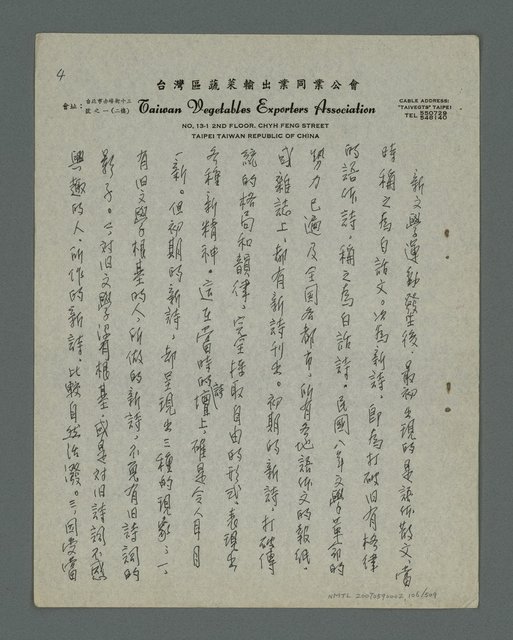 4
台灣區蔬菜輸出業同業公會
會址：台北市赤峰街十三號之一(二樓)
Taiwan Vegetables Exporters Association
CABLE ADDRESS:
"TAIVEGTS" TAIPEI
TEL 550728
548140
NO. 13-1 2ND FLOOR, CHYH FENG STREET
TAIPEI TAIWAN REPUBLIC OF CHINA
新文學運動發生後，最初出現的是語体散文，當
時稱之為白話文。次為新詩，即為打破旧有格律
的語体詩，稱之為白話詩。民國八年文學革命的
勢力已遍及全国各都市，所有各地語体文的報紙
或雜誌上，都有新詩刊出。初期的新詩，打破傳
統的格局和韻律，完全採取自由的形式，表現出
各種新精神。這在當時的詩壇上，確是令人耳目
一新。但初期的新詩，却呈現出三種的現象，一、
有旧文學根基的人，所做的新詩，不免有旧詩詞的
影子。二、对旧文學沒有根基，或是对旧詩詞不感
興趣的人，所作的新詩，比較自然活潑。三、因受當
NMTL 20070590002 106/509